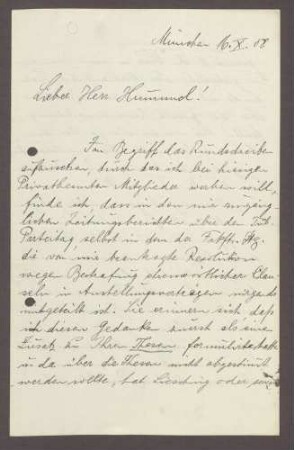 München 16. X. 08
Lieber Herr Hummel!
Im Begriff das Rundschreiben
durch das ich bei hiesigen
Privatbeamten Mitglieder werben will,
finde ich dass in den mir zugäng-
lichen Zeitungsberichten über den
Parteitag selbst in dem der Frkft. Ztg.
die von mir beantragte Resolution
wegen ehrenwörtlicher Clau-
seln in Anstellungsverträgen nirgends
mitgeteilt ist. Sie erinnern sich daß
ich diesen Gedanken zuerst als eine
Zusatz zu Ihren Thesen formuliert hatte
u da über die Thesen nicht abgestimmt
werden sollte, hat oder sonst